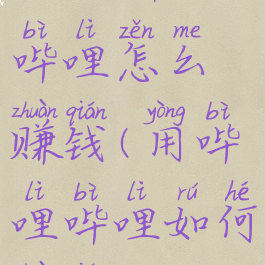 bì lì zěn me
哔哩怎么
zhuàn qián yòng bì
赚钱(用哔
lì bì lì rú hé
哩哔哩如何